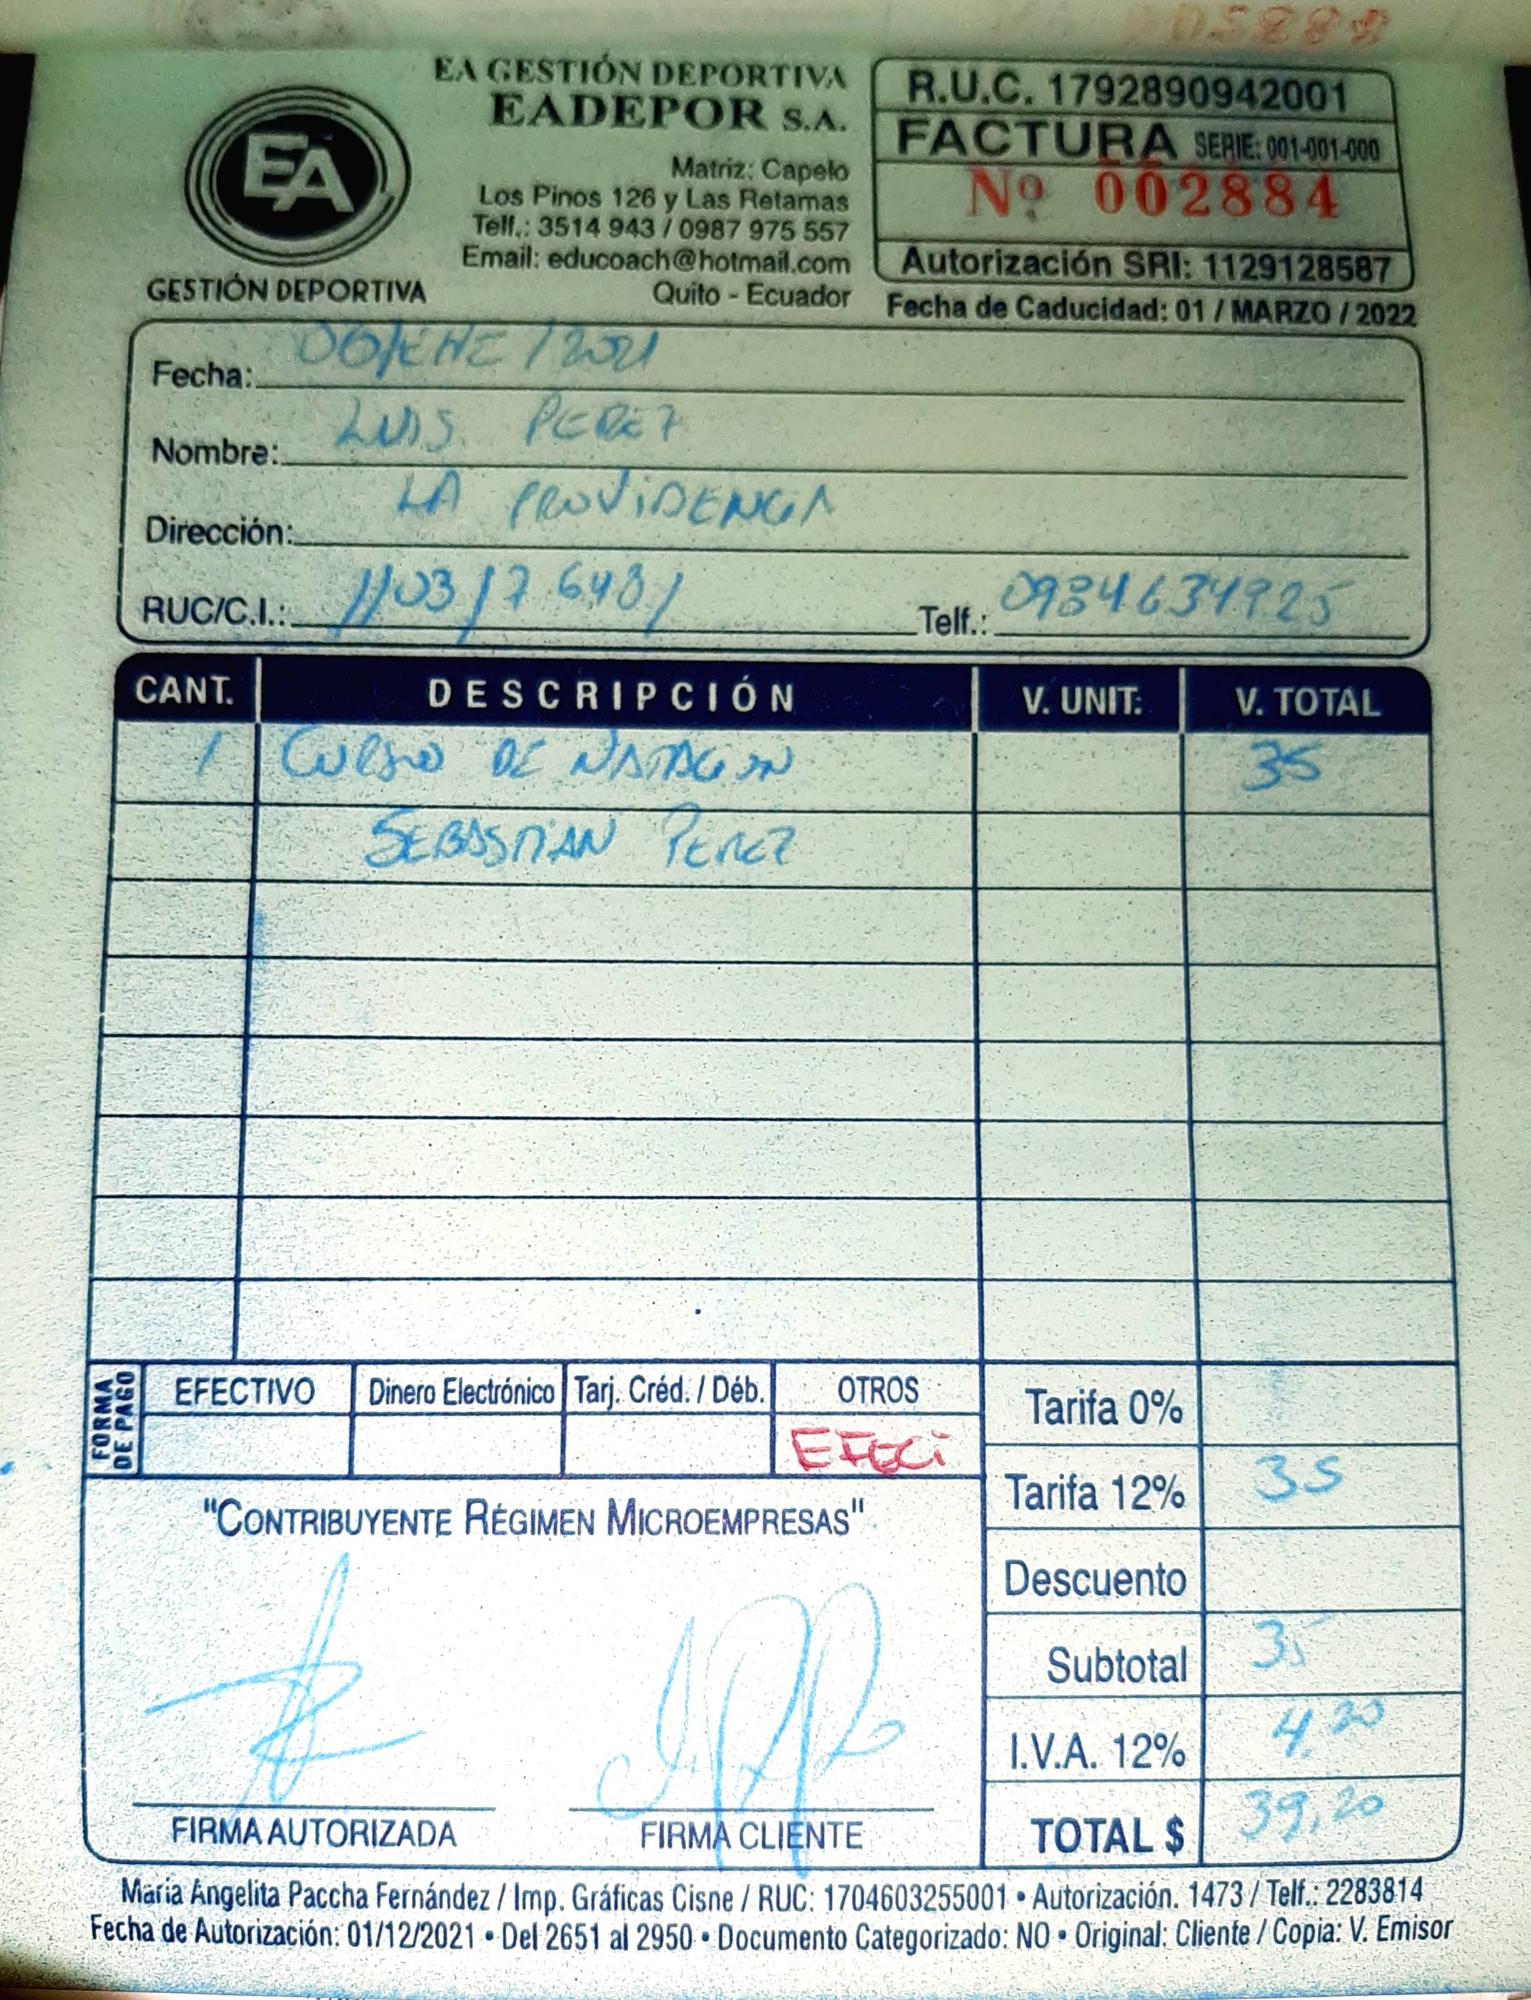 EA GESTIÓN DEPORTIVA
EADEPOR S.A.
Matriz: Capelo
Los Pinos 126 y Las Retamas
Telf.: 3514 943 / 0987 975 557
Email: educoach@hotmail.com
Quito - Ecuador
EA
GESTIÓN DEPORTIVA
R.U.C. 1792890942001
FACTURA SERIE: 001-001-000
Nº 002884
Autorización SRI: 1129128587
Fecha de Caducidad: 01 / MARZO / 2022
Fecha: 06/ENE/2021
Nombre: LUIS PEREZ
Dirección: LA PROVIDENCIA
RUC/C.I.: 1103176481 Telf.: 0984634925
CANT. DESCRIPCIÓN V. UNIT: V. TOTAL
1 CURSO DE NATACION 35
SEBASTIAN PEREZ
FORMA DE PAGO
EFECTIVO Dinero Electrónico Tarj. Créd. / Déb. OTROS
EFECi
Tarifa 0%
Tarifa 12% 35
Descuento
Subtotal 35
I.V.A. 12% 4.20
TOTAL $ 39,20
"CONTRIBUYENTE RÉGIMEN MICROEMPRESAS"
FIRMA AUTORIZADA FIRMA CLIENTE
María Angelita Paccha Fernández / Imp. Gráficas Cisne / RUC: 1704603255001 • Autorización. 1473 / Telf.: 2283814
Fecha de Autorización: 01/12/2021 • Del 2651 al 2950 • Documento Categorizado: NO • Original: Cliente / Copia: V. Emisor